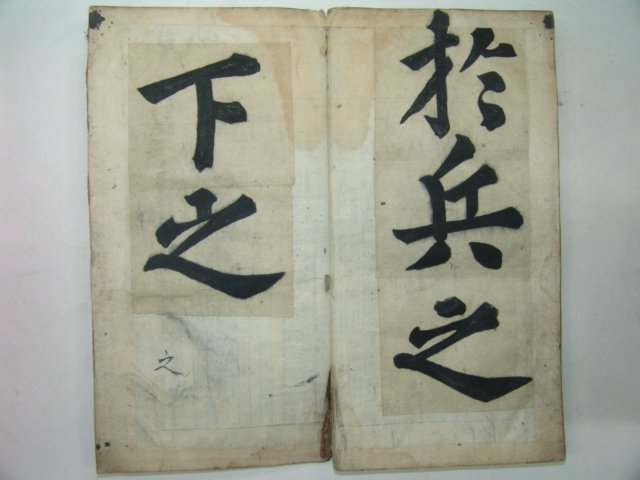 於兵之
下之
之